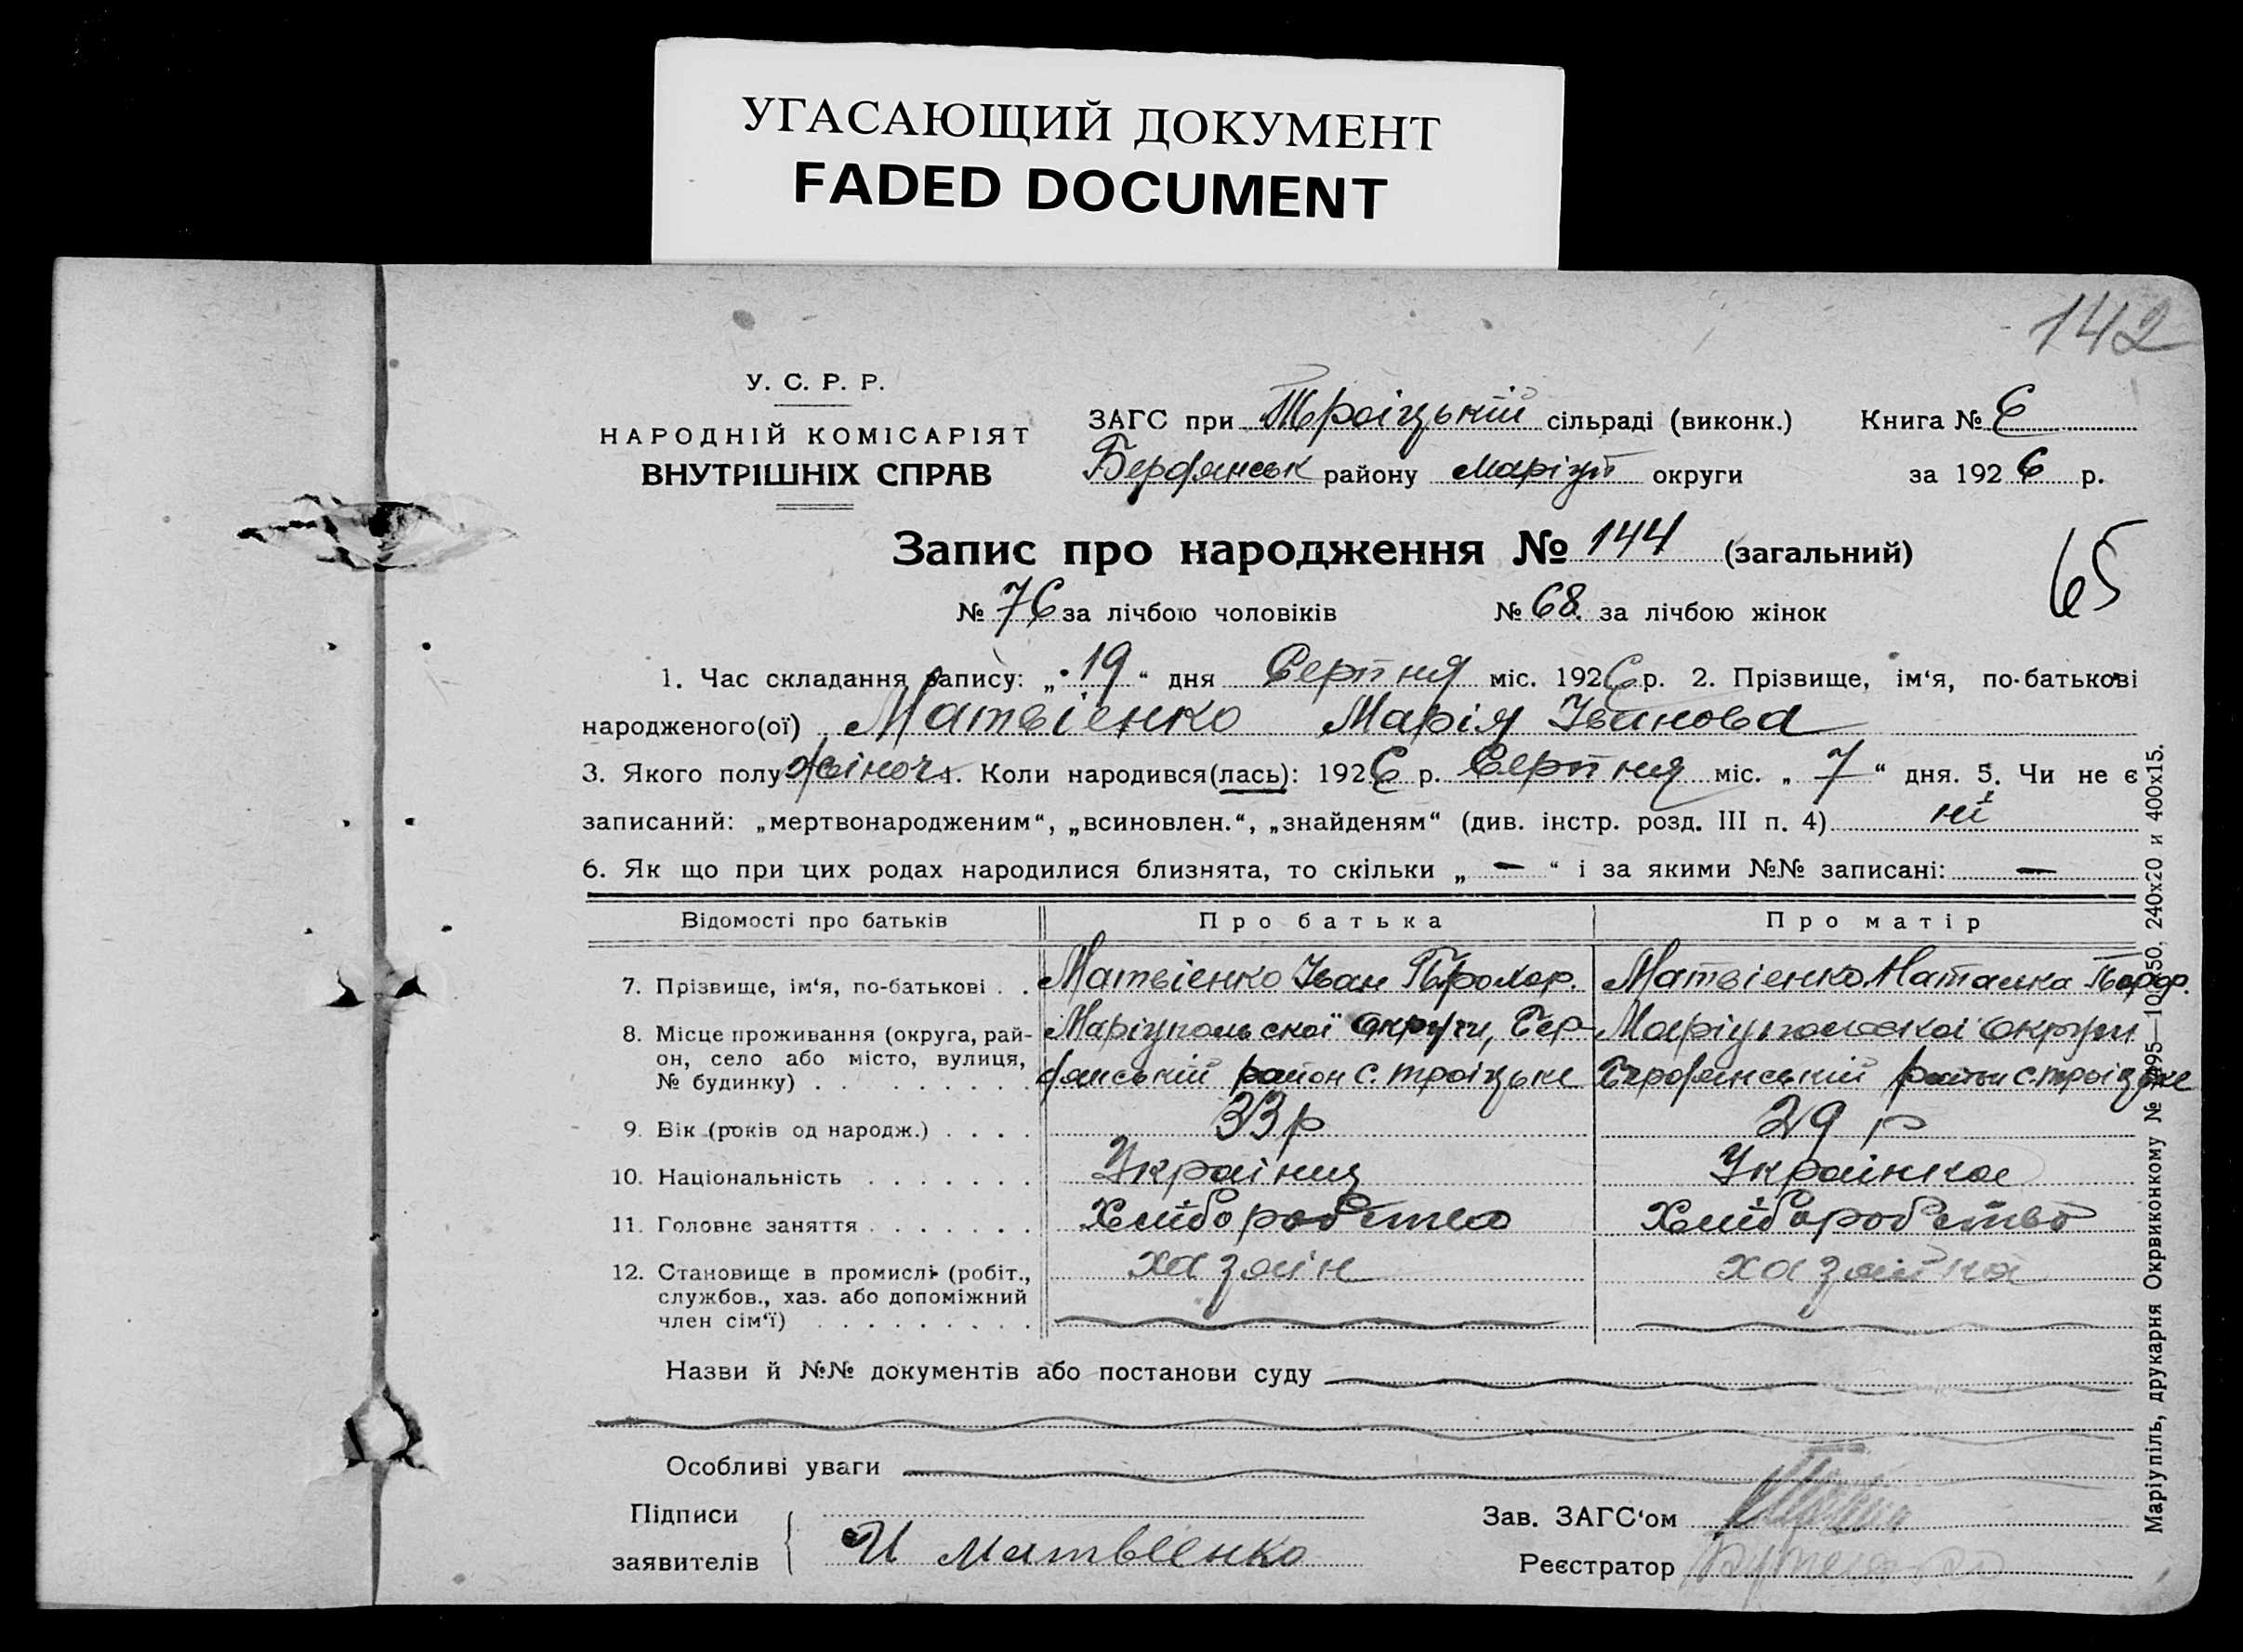 УГАСАЮЩИЙ ДОКУМЕНТ
FADED DOCUMENT
142
У. С. Р. Р.
НАРОДНІЙ КОМІСАРІЯТ
ВНУТРІШНІХ СПРАВ
ЗАГС при Троіцькій сільраді (виконк.) Книга № 6
Бердянськ району Маріуп округи за 1926 р.
Запис про народження № 144 (загальний)
65
№ 76 за лічбою чоловіків № 68. за лічбою жінок
1. Час складання запису: „19“ дня Серпня міс. 1926 р. 2. Прізвище, ім‘я, по-батькові
народженого(ої) Матвіенко Марія Іванова
3. Якого полу жіноч 4. Коли народився(лась): 1926 р. Серпня міс. „7“ дня. 5. Чи не є
записаний: „мертвонародженим“, „всиновлен.“, „знайденям“ (див. інстр. розд. III п. 4) ні
6. Як що при цих родах народилися близнята, то скільки „ — “ і за якими №№ записані: —
Відомості про батьків Про батька Про матір
7. Прізвище, ім‘я, по-батькові . . Матвіенко Іван Прохор. Матвіенко Наталка
8. Місце проживання (округа, рай- Маріупольскоі округи, Бер- Маріупольскоі округи
он, село або місто, вулиця, № будинку) . . . . . . . . дянській район с. Троіцьке Бердянській район с. Троіцьке
9. Вік (років од народж.) . . . . 33 р 29 р
10. Національність . . . . . . . Украінец Украінка
11. Головне заняття . . . . . . . Хліборобство Хліборобство
12. Становище в промислі (робіт., хазяін хазяйка
службов., хаз. або допоміжний
член сім‘ї) . . . . . . . . .
Назви й №№ документів або постанови суду
Особливі уваги
Підписи
заявителів И Матвиенко
Зав. ЗАГС‘ом
Реєстратор
Маріупіль, друкарня Окрвиконкому № 240х20 и 400х15.